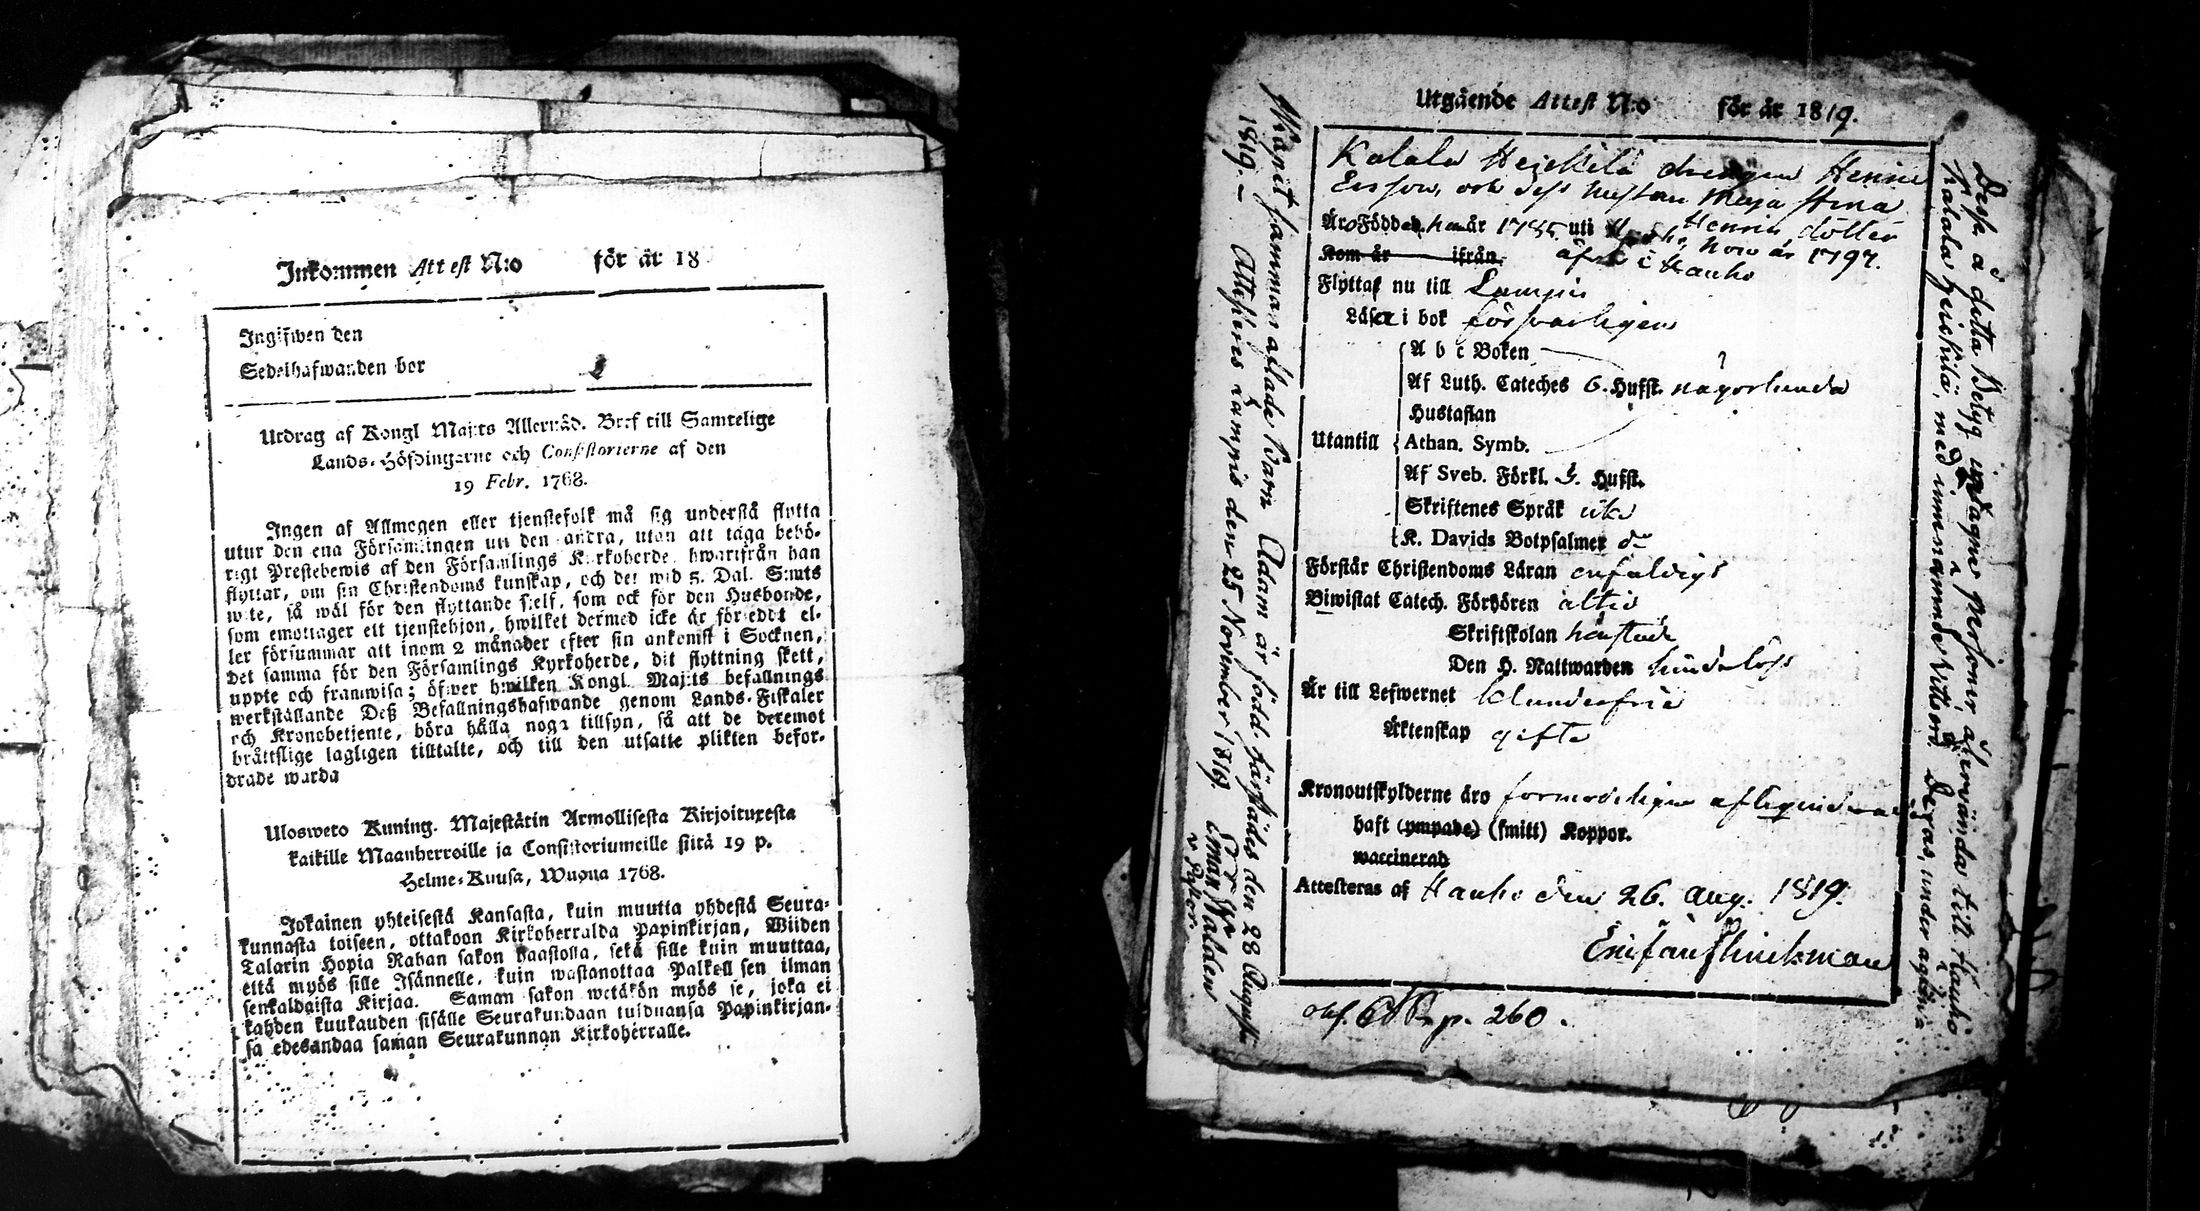 Inkommen Attest N:o för år 18
Ingifwen den
Sedelhafwanden bor
Utdrag af Kongl Maj:ts Allernåd. Bref till Samtelige
Lands-Höfdingarne och Consistorierne af den
19 Febr. 1768.
Ingen af Allmogen eller tjenstefolk må sig understå flytta
utur den ena Församlingen uti den andra, utan att taga behö-
rigt Prestebewis af den Församlings Kyrkoherde, hwarifrån han
flyttar, om sin Christendoms kunskap, och det wid 5. Dal. S:mts
wite, så wäl för den flyttande sjelf, som ock för den Husbonde,
som emottager ett tjenstehjon, hwilket dermed icke är försedt el-
ler försummar att inom 2 månader efter sin ankomst i Socknen,
det samma för den Församlings Kyrkoherde, dit flyttning skett,
uppte och framwisa; öfwer hwilken Kongl. Maj:ts befallnings
werkställande Deß Befallningshafwande genom Lands-Fiskaler
och Kronobetjente, böra hålla noga tillsyn, så att de deremot
bråttslige lagligen tilltalte, och till den utsatte plikten befor-
drade warda
Ulosweto Kuning. Majestätin Armollisesta Kirjoituxesta
kaikille Maanherroille ja Consistoriumeille siitä 19 p.
Helme-Kuusa, Wuona 1768.
Jokainen yhteisestä Kansasta, kuin muutta yhdestä Seura-
kunnasta toiseen, ottakoon Kirkoherralda Papinkirjan, Wiiden
Talarin Hopia Rahan sakon haastolla, sekä sille kuin muuttaa,
että myös sille Isännelle, kuin wastanottaa Palkollisen ilman
senkaldaista Kirjaa. Saman sakon wetäkön myös se, joka ei
kahden kuukauden sisälle Seurakundaan tulduansa Papinkirjan-
sa edesandaa saman Seurakunnan Kirkoherralle.
Utgående Attest N:o för år 1819.
Kalala Heikkilä drengen Henric
Ersson, och dess hustru Maja Stina
Henrics dotter
Äro Födde han år 1785 uti Hauho, hon år 1797.
Kom år ifrån äfven i Hauho
Flyttar nu till Lampis
Läsa i bok försvarligen
A b c Boken
Af Luth. Cateches 6. Hufst. någorlunda
Hustaflan
Utantill Athan. Symb.
Af Sveb. Förkl. 5. Hufst.
Skriftenes Språk
K. Davids Botpsalmer do
Förstår Christendoms Läran enfaldigt
Biwistat Catech. Förhören altid
Skriftskolan
Den H. Nattwarden
Är till Lefwernet klanderfrie
Äktenskap gifte
Kronoutskylderne äro förmodeligen
haft (ympade) (smitt) Koppor.
waccinerad
Attesteras af Hauho den 26. Aug. 1819.
p. 260.
Dessa å detta Betyg intagne personer återvända till Hauho
Kalala Heikkilä, med
barn Adam är född härstädes den 28 Augusti
1819. – Attesteras Lampis den 25 November 1819.